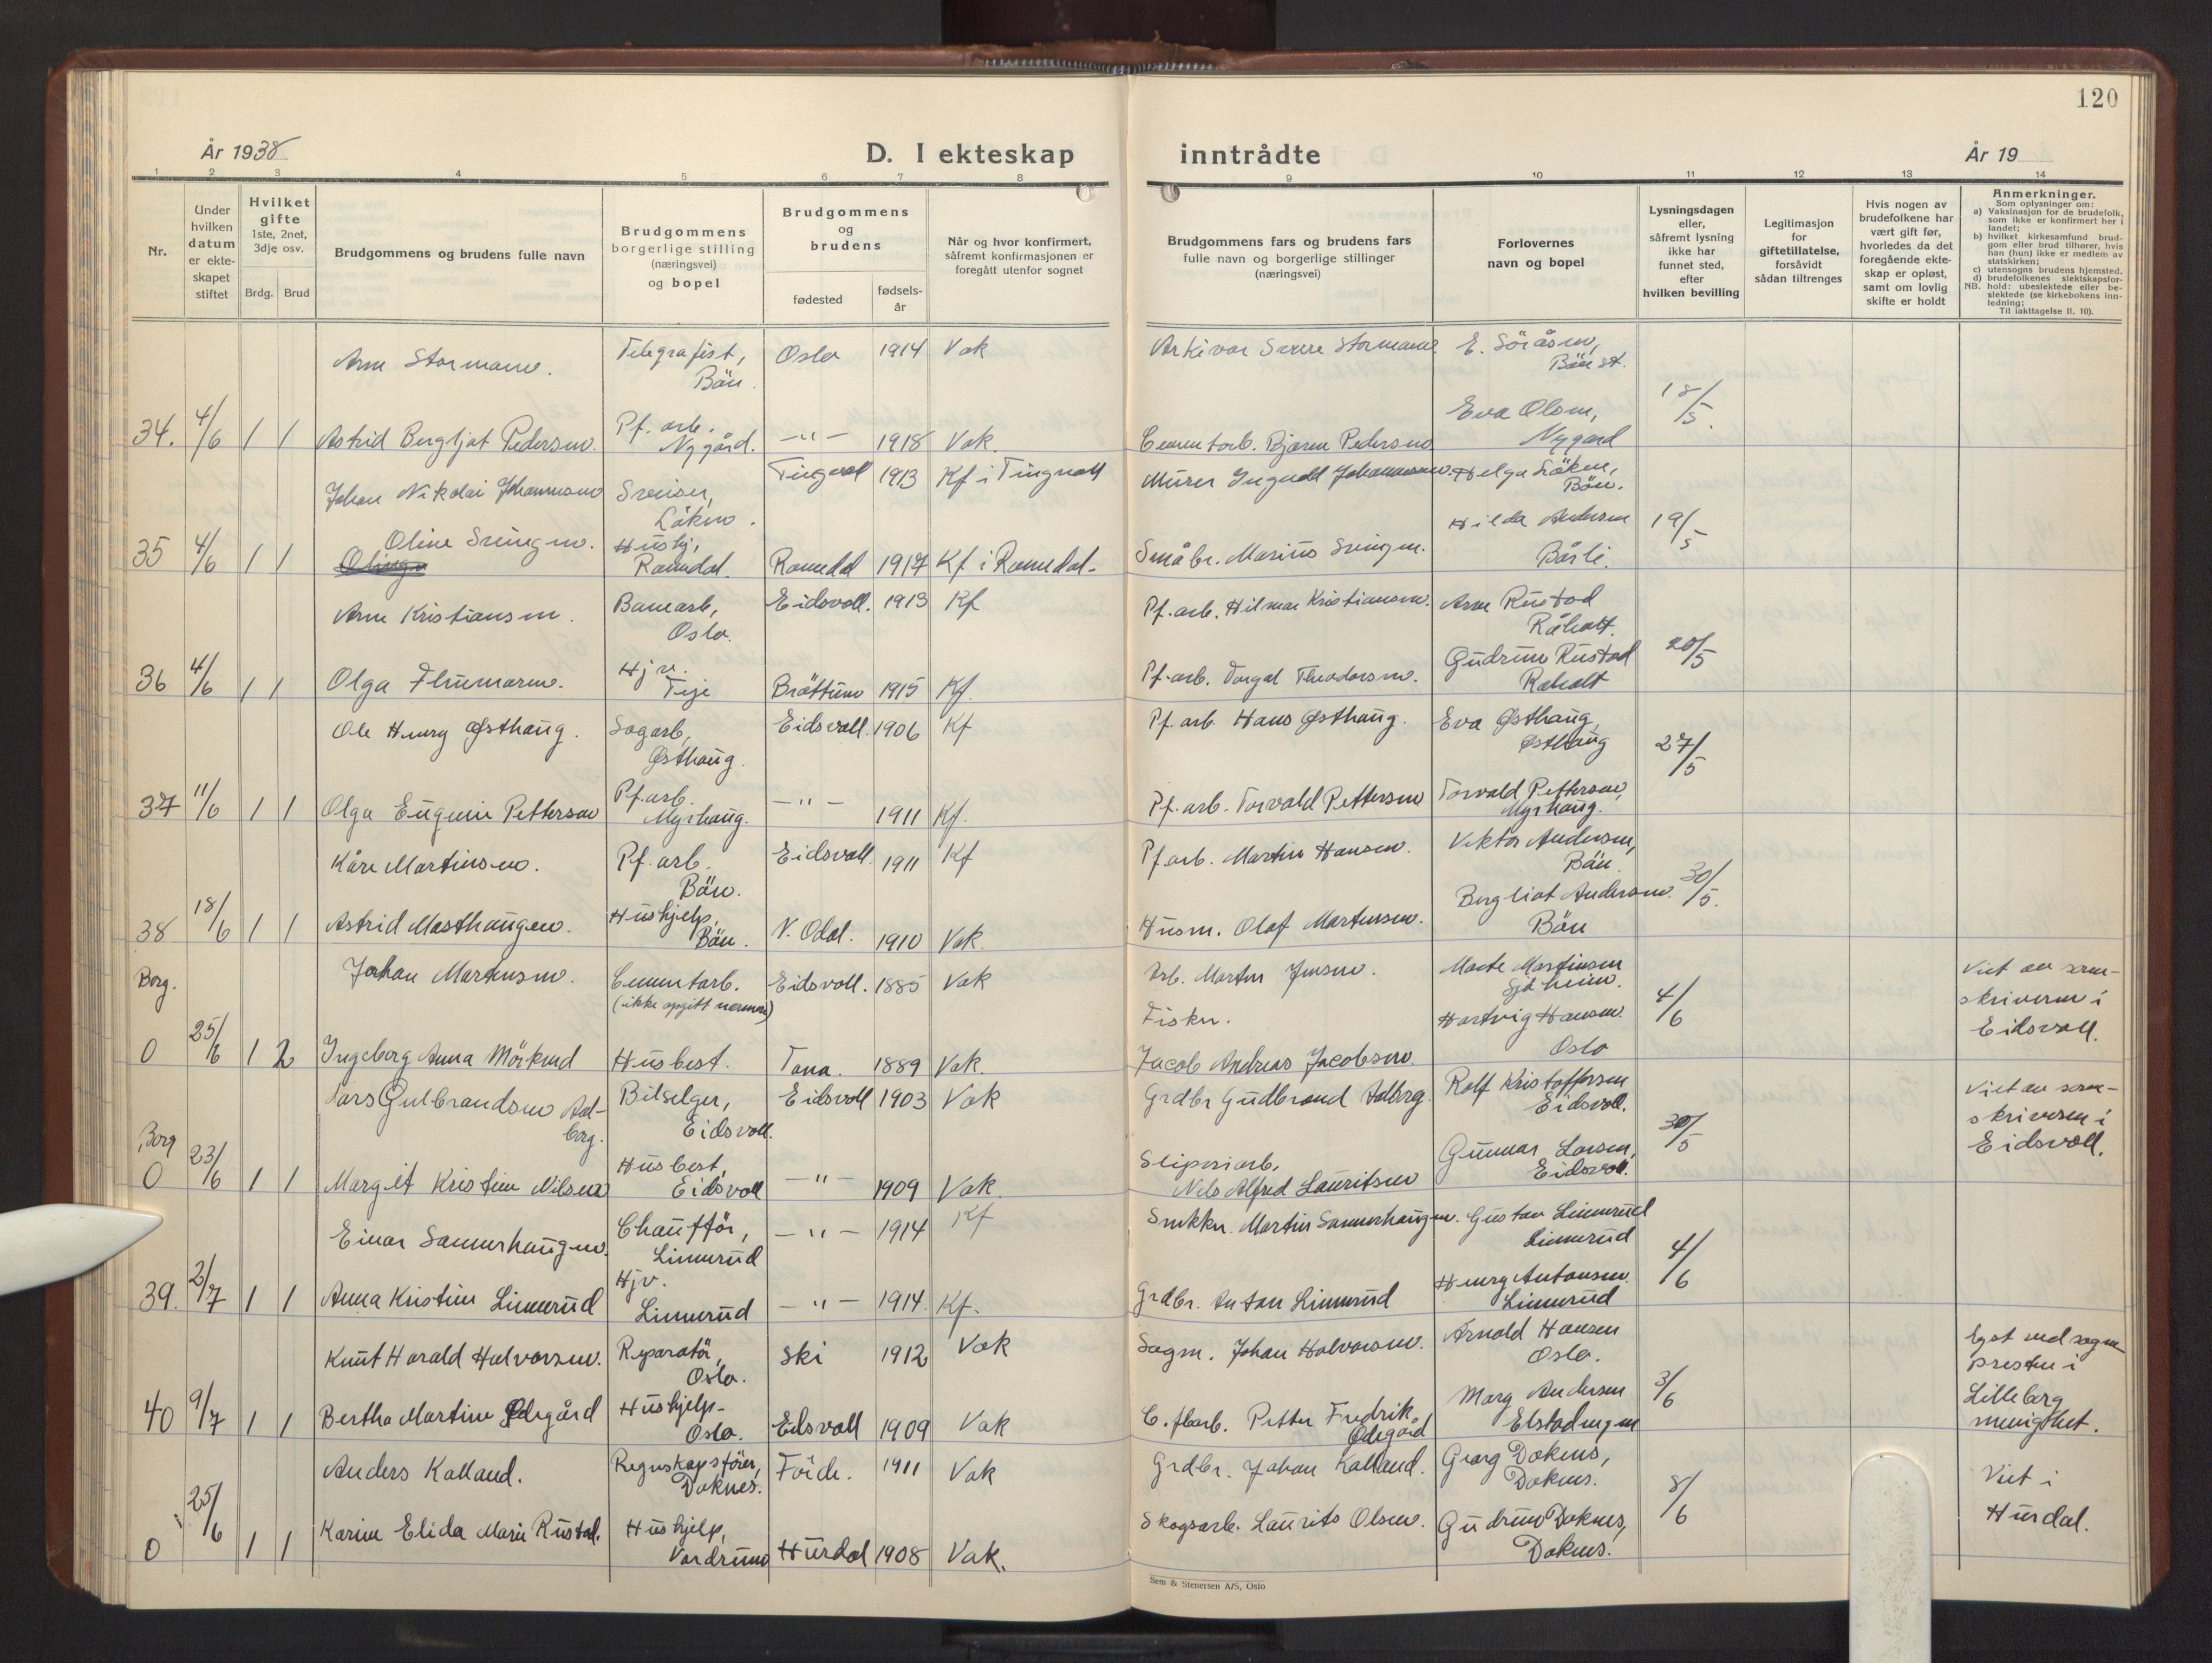 120
År 1938
D. I ekteskap
inntrådte
År 19
1 2 3 4 5 6 7 8 9 10 11 12 13 14
Nr.
Under
hvilken
datum
er ekte-
skapet
stiftet
Hvilket
gifte
1ste, 2net,
3dje osv.
Brdg. Brud
Brudgommens og brudens fulle navn
Brudgommens
borgerlige stilling
(næringsvei)
og bopel
Brudgommens
og
brudens
fødested
fødsels-
år
Når og hvor konfirmert,
såfremt konfirmasjonen er
foregått utenfor sognet
Brudgommens fars og brudens fars
fulle navn og borgerlige stillinger
(næringsvei)
Forlovernes
navn og bopel
Lysningsdagen
eller,
såfremt lysning
ikke har
funnet sted,
efter
hvilken bevilling
Legitimasjon
for
giftetillatelse,
forsåvidt
sådan tiltrenges
Hvis nogen av
brudefolkene har
vært gift før,
hvorledes da det
foregående ekte-
skap er opløst,
samt om lovlig
skifte er holdt
Anmerkninger.
Som oplysninger om:
a) Vaksinasjon for de brudefolk,
som ikke er konfirmert her i
landet;
b) hvilket kirkesamfund brud-
gom eller brud tilhører, hvis
han (hun) ikke er medlem av
statskirken;
c) utensogns brudens hjemsted.
d) brudefolkenes slektskapsfor-
NB. hold: ubeslektede eller be-
slektede (se kirkebokens inn-
ledning;
Til iakttagelse II, 10).
Arne Stormann. Telegrafist, Oslo 1914 Vak Arkivar Sverre Stormann. E. Söråsen,
Bön. Bön st.
Eva Olsen, 18/5.
34. 4/6 1 1 Astrid Bergljot Pedersen. Pf. arb. Nygård. -"- 1918 Vak. Cementarb. Bjarne Pedersen Nygaard
Johan Nikolai Johannesen Sveiser, Tingvoll 1913 Kf i Tingvoll Murer Ingvald Johannesen. Helga Löken,
Löken. Bön.
Oline Svingen. Hushj, Hilda Andersen 19/5
35 4/6 1 1 Romedal. Romedal 1917 Kf i Romedal. Småbr. Marius Svingen. Bårli.
Arne Kristiansen. Banearb, Eidsvoll. 1913 Kf Pf. arb. Hilmar Kristiansen. Arne Rustad
Oslo. Råholt.
Hjv. Gudrun Rustad 20/5
36 4/6 1 1 Olga Teje Brøttum 1915 Kf. Pf. arb. Torgal Theodorsen. Råholt
Ole Henry Østhaug. Sagarb, Eidsvoll. 1906 Kf Pf. arb. Hans Østhaug. Eva Østhaug,
Østhaug. Østhaug 27/5
37 11/6 1 1 Olga Eugenie Pettersen Pf. arb. -"- 1911 Kf. Pf. arb. Torvald Pettersen Torvald Pettersen,
Myrhaug. Myrhaug.
Kåre Martinsen. Pf. arb. Eidsvoll. 1911 Kf Pf. arb. Martin Hansen. Viktor Andersen,
Bön. Bön
Hushjelp, Bergliot Andersen. 30/5.
38 18/6 1 1 Astrid Masthaugen. Bön. N. Odal. 1910 Vak. Husm. Olaf Martinsen. Bön
Borg. Johan Martinsen. Cementarb. Eidsvoll. 1885 Vak Arb. Martin Jensen. Marte Martinsen Viet av soren-
(ikke opgitt nermere) Sjöheim. 4/6 skriveren i
Fisker. Hartvig Hansen. Eidsvoll.
0 25/6 1 2 Ingeborg Anna Mörkved Husbest. Tana. 1889 Vak. Jacob Andreas Jacobsen. Oslo
Lars Gulbrandsen Aal- Bilselger, Eidsvoll 1903 Vak Grdbr Gudbrand Aalborg. Rolf Kristoffersen Viet av soren-
borg. Eidsvoll. Eidsvoll. skriveren i
Borg Husbest, Sliperiarb, Gunnar Larsen, 30/5 Eidsvoll.
0 23/6 1 1 Margit Kristine Nilsen Eidsvoll -"- 1909 Vak. Nils Alfred Lauritsen Eidsvoll.
Einar Sannerhaugen. Chauffør, -"- 1914 Kf Snekker. Martin Sannerhaugen. Gustav Linnerud
Linnerud Linnerud
Hjv. Henry Antonsen. 4/6
39. 2/7 1 1 Anna Kristine Linnerud Linnerud -"- 1914. Kf. Grdbr. Anton Linnerud Linnerud
Knut Harald Halvorsen. Reparatør, Ski 1912 Vak Sagm. Johan Halvorsen. Arnold Hansen Lyst ved sogne-
Oslo. Oslo. presten i
Hushjelp- Marg Andersen 3/6 Lilleborg
40 9/7 1 1 Bertha Martine Ødegård Oslo. Eidsvoll 1909 Vak Petter Fredrik Ødegård Elstadengen menighet.
Anders Kalland. Regnskapsfører, Förde. 1911 Vak Grdbr. Johan Kalland. Georg Doknes,
Doknes. Doknes. Viet i
Karine Elida Marie Rustad. Hushjelp, Skogsarb. Laurits Olsen. Gudrun Doknes, 8/6 Hurdal.
0 25/6 1 1 Hurdal 1908 Vak. Doknes.
Sem & Stenersen A/S, Oslo